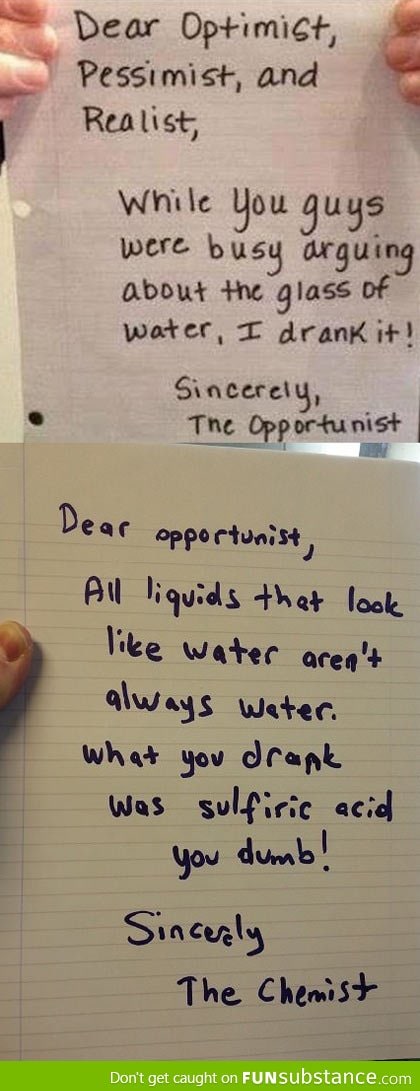 Dear Optimist,
Pessimist, and
Realist,
While you guys
were busy arguing
about the glass of
water, I drank it!
Sincerely,
The Opportunist
Dear opportunist,
All liquids that look
like water aren't
always water.
what you drank
was sulfiric acid
you dumb!
Sincerly
The Chemist
Don't get caught on FUNsubstance.com